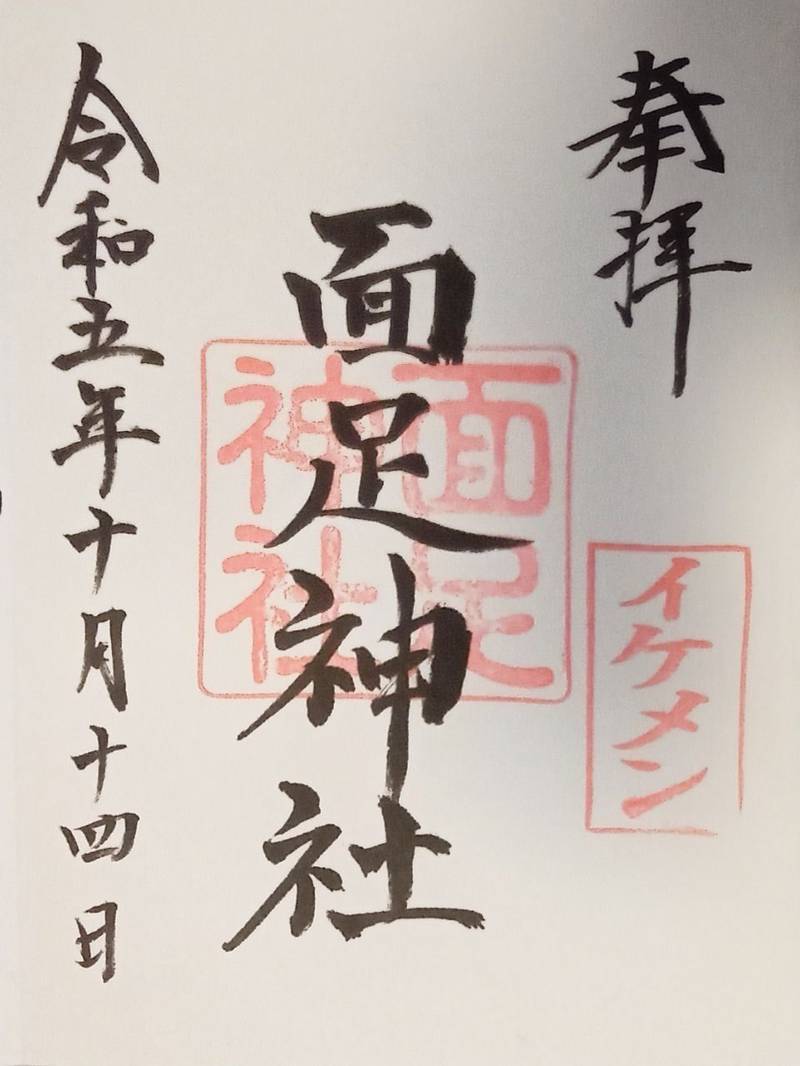 奉拝
イケメン
面足神社
面足
神社
令和五年十月十四日